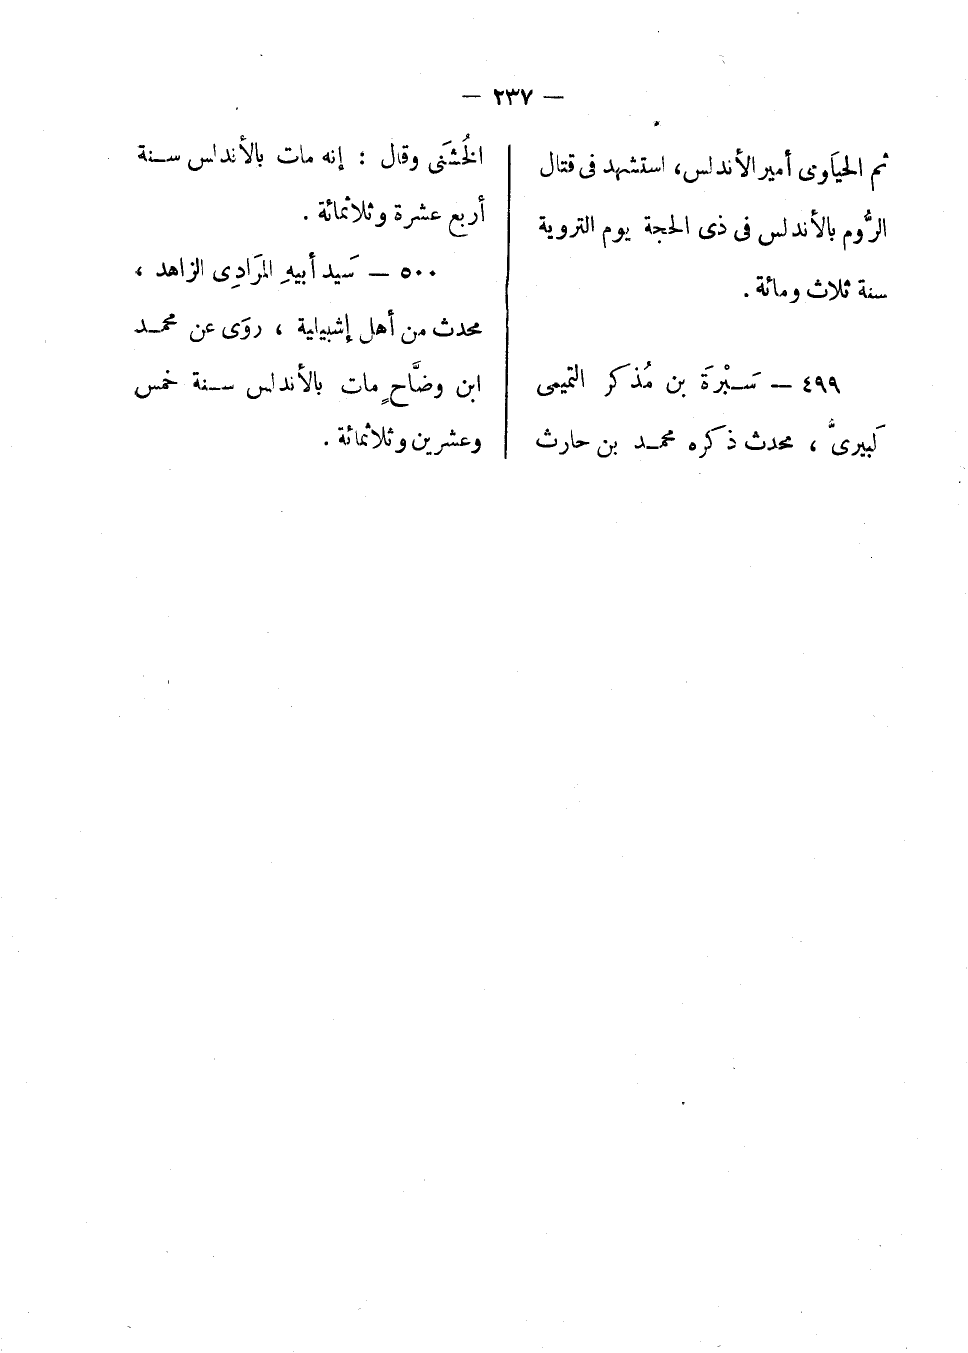 — ٢٣٧ —
ثم الحيَاوى أمير الأندلس، استشهد فى قتال
الرُّوم بالأندلس فى ذى الحجة يوم التروية
سنة ثلاث ومائة .
٤٩٩ — سَـبْرَة بن مُذكر التميمى
كَبيرىُّ ، محدث ذكره محمـد بن حارث
الخُشَنَى وقال : إنه مات بالأندلس سـنة
أربع عشرة وثلاثمائة .
٥٠٠ — سَيد أبيهِ المرَادِى الزاهد ،
محدث من أهل إشبيلية ، روَى عن محمـد
ابن وضَّاحٍ مات بالأندلس سـنة خمس
وعشرين وثلاثمائة .